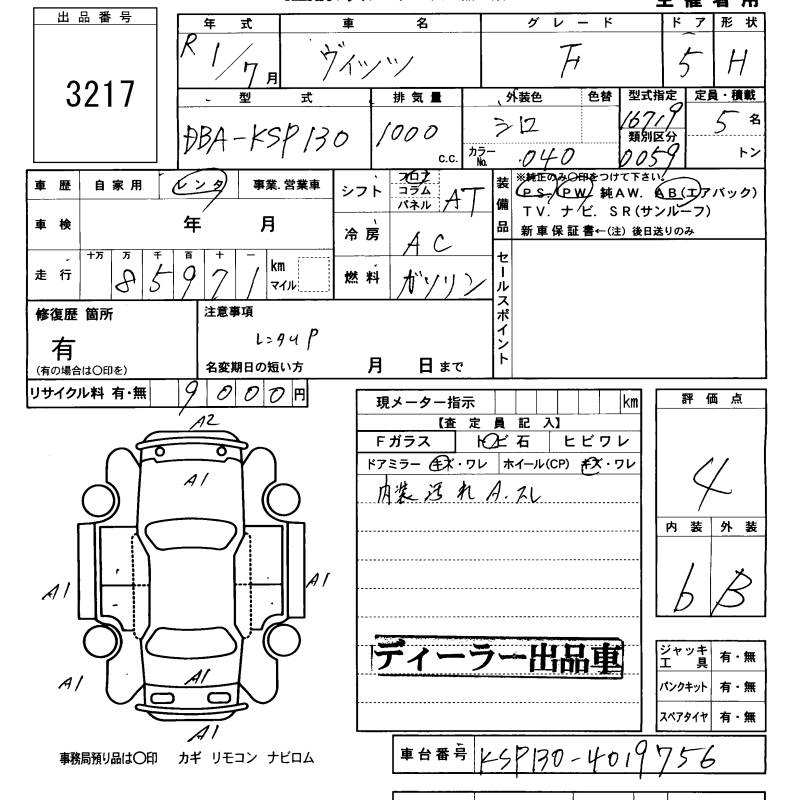 出品番号
3217
年式 車名 グレード ドア 形状
R 1/7月 ヴィッツ F 5 H
型式 排気量 外装色 色替 型式指定 定員・積載
DBA-KSP130 1000 c.c. シロ 16719 5名
カラーNo. 040 類別区分 0059 トン
車歴 自家用 レンタ 事業.営業車
車検 年 月
走行 十万 万 千 百 十 一
85971 km マイル
シフト フロア コラム パネル AT
冷房 AC
燃料 ガソリン
装備品
※純正のみ○印をつけて下さい。
PS. PW. 純AW. AB(エアバック)
TV. ナビ. SR(サンルーフ)
新車保証書←(注) 後日送りのみ
セールスポイント
修復歴 箇所
有
(有の場合は○印を)
注意事項
レンタUP
名変期日の短い方 月 日まで
リサイクル料 有・無 9000円
現メーター指示 km
【査定員記入】
Fガラス トビ石 ヒビワレ
ドアミラー キズ・ワレ ホイール(CP) キズ・ワレ
内装 汚れ A.スレ
評価点
4
内装 外装
b B
A2
A1
A1
A1
A1
A1
A1
ディーラー出品車
ジャッキ工具 有・無
パンクキット 有・無
スペアタイヤ 有・無
事務局預り品は○印 カギ リモコン ナビロム
車台番号 KSP130-4019756